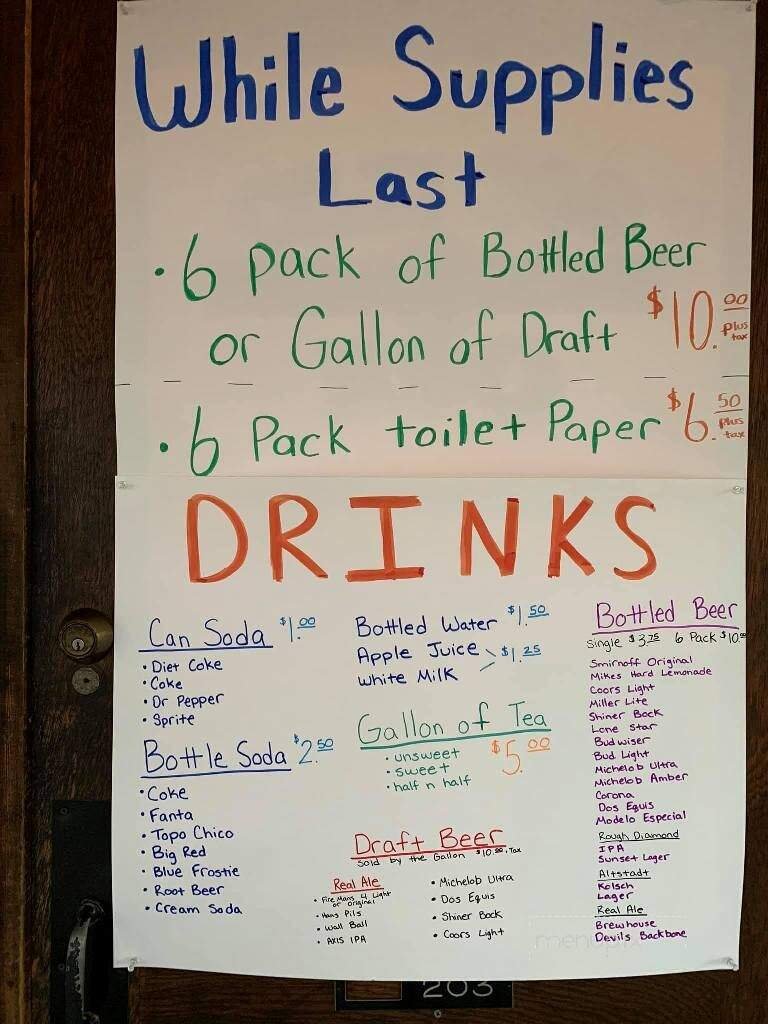 While Supplies
Last
• 6 pack of Bottled Beer
or Gallon of Draft $10.00 plus tax
• 6 Pack toilet Paper $6.50 plus tax
DRINKS
Can Soda $1.00
• Diet Coke
• Coke
• Dr Pepper
• Sprite
Bottle Soda $2.50
• Coke
• Fanta
• Topo Chico
• Big Red
• Blue Frostie
• Root Beer
• Cream Soda
Bottled Water $1.50
Apple Juice
White Milk
$1.25
Gallon of Tea
$5.00
• unsweet
• sweet
• half n half
Draft Beer
Sold by the Gallon $10.00 + Tax
Real Ale
• Fire Mans 4 Light
or Original
• Hans Pils
• Wall Ball
• AXIS IPA
• Michelob Ultra
• Dos Equis
• Shiner Bock
• Coors Light
Bottled Beer
Single $3.75 6 Pack $10.00
Smirnoff Original
Mikes Hard Lemonade
Coors Light
Miller Lite
Shiner Bock
Lone Star
Budwiser
Bud Light
Michelob Ultra
Michelob Amber
Corona
Dos Equis
Modelo Especial
Rough Diamond
IPA
Sunset Lager
Altstadt
Kolsch
Lager
Real Ale
Brewhouse
Devils Backbone
203